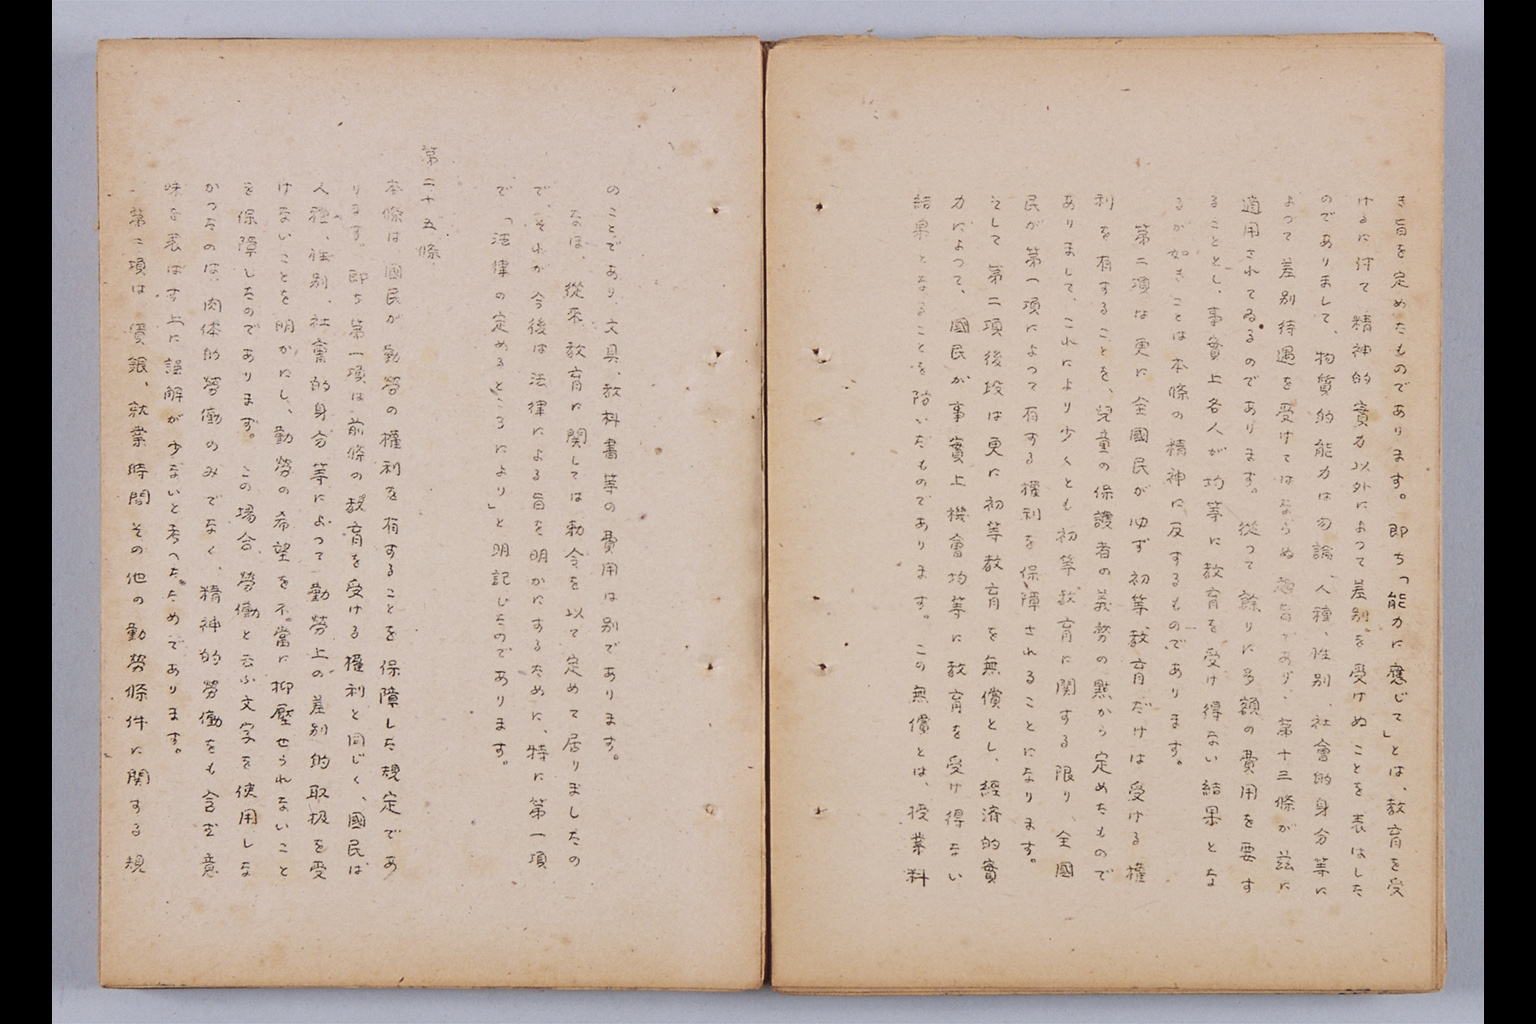 き旨を定めたものであります。即ち「能力に應じて」とは、教育を受
けるに付て精神的實力以外によつて差別を受けぬことを表はした
のでありまして、物質的能力は勿論、人種、性別、社會的身分等に
よつて差別待遇を受けてはならぬ趣旨であり、第十三條が茲に
適用されてゐるのであります。從つて餘りに多額の費用を要す
ることとし、事實上各人が均等に教育を受け得ない結果とな
るが如きことは本條の精神に反するものであります。
第二項は更に全國民が必ず初等教育だけは受ける權
利を有することを、兒童の保護者の義務の點から定めたもので
ありまして、これにより少くとも初等教育に関する限り、全國
民が第一項によつて有する權利を保障されることになります。
そして第二項後段は更に初等教育を無償とし、經済的實
力によつて、國民が事實上機會均等に教育を受け得ない
結果となることを防いだものであります。この無償とは、授業料
のことであり、文具、教科書等の費用は別であります。
なほ、從來教育に関しては勅令を以て定めて居りましたの
で、それが今後は法律による旨を明かにするために、特に第一項
で「法律の定めるところにより」と明記したのであります。
第二十五條
本條は國民が勤勞の權利を有することを保障した規定であ
ります。即ち第一項は前條の教育を受ける權利と同じく、國民は
人種、性別、社會的身分等によつて勤勞上の差別的取扱を受
けないことを明かにし、勤勞の希望を不當に抑壓せられないこと
を保障したのであります。この場合、勞働と云ふ文字を使用しな
かつたのは、肉体的勞働のみでなく、精神的勞働をも含む意
味を表はす上に誤解が少ないと考へたためであります。
第二項は賃銀、就業時間その他の勤勞條件に関する規